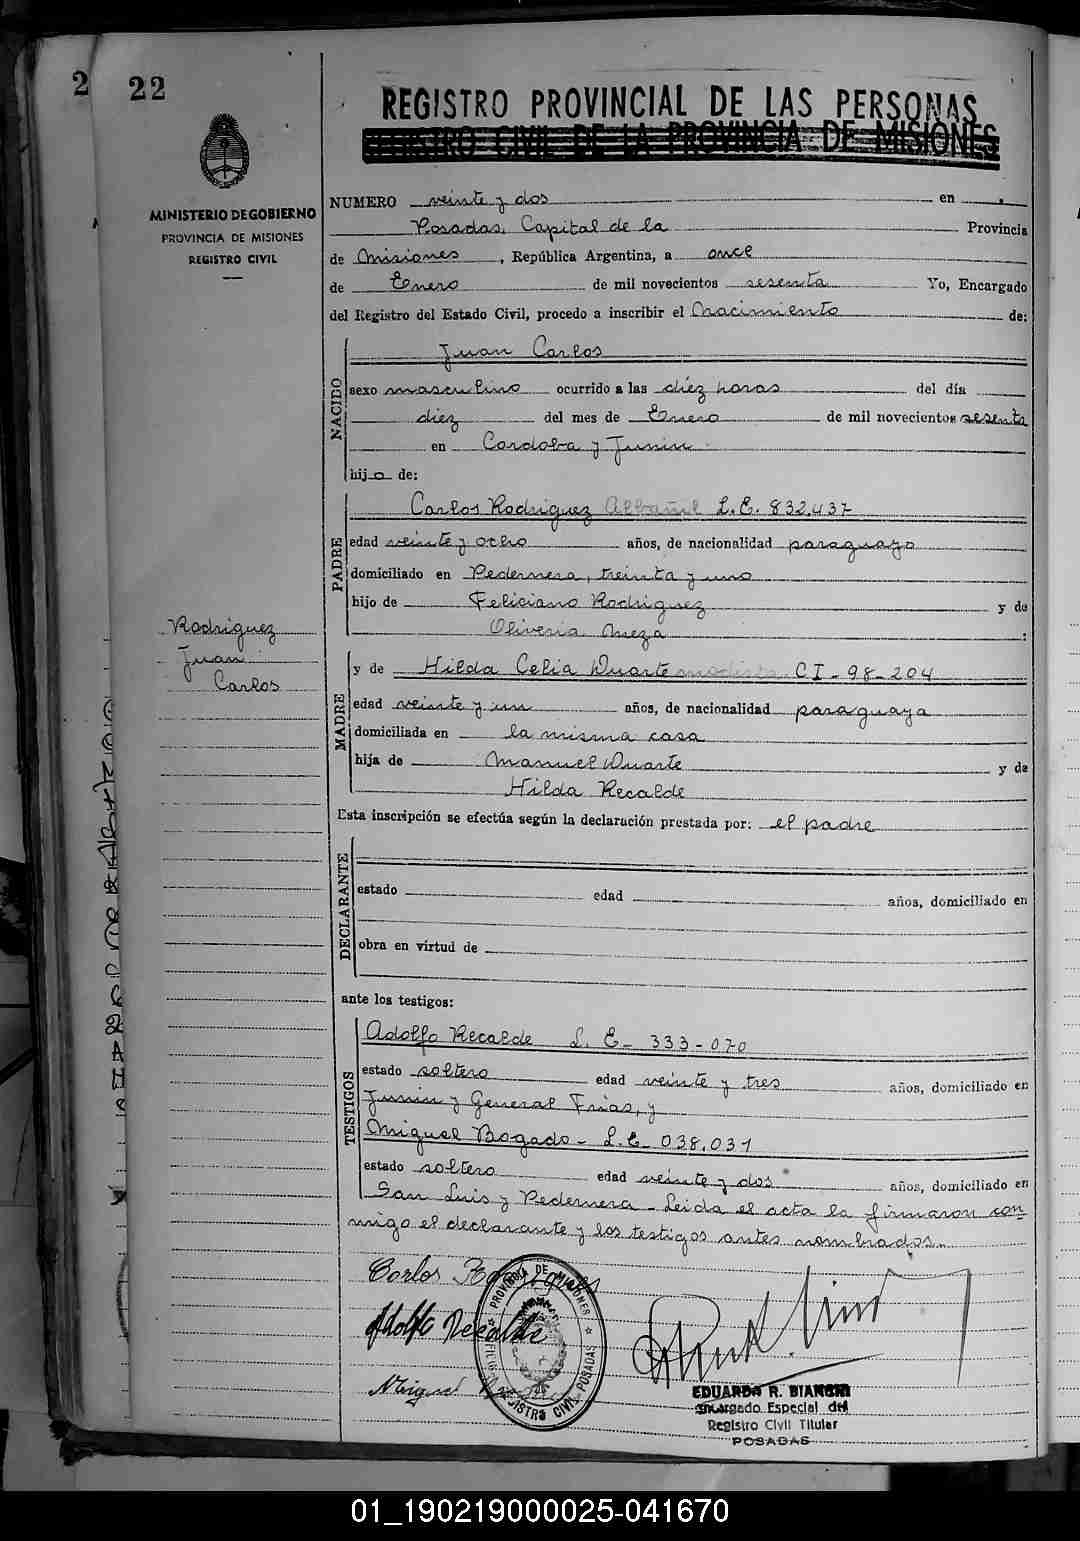 2 22
REGISTRO PROVINCIAL DE LAS PERSONAS
REGISTRO CIVIL DE LA PROVINCIA DE MISIONES
MINISTERIO DE GOBIERNO
PROVINCIA DE MISIONES
REGISTRO CIVIL
NUMERO veinte y dos en
Posadas, Capital de la Provincia
de Misiones, República Argentina, a once
de Enero de mil novecientos sesenta Yo, Encargado
del Registro del Estado Civil, procedo a inscribir el Nacimiento de:
NACIDO
Juan Carlos
sexo masculino ocurrido a las diez horas del día
diez del mes de Enero de mil novecientos sesenta
en Cordoba y Junin.
hijo de:
PADRE
Carlos Rodriguez Albañil L.E. 832.437
edad veinte y ocho años, de nacionalidad paraguayo
domiciliado en Pedernera, treinta y uno
hijo de Feliciano Rodriguez y de
Oliveria Meza
Rodriguez
Juan
Carlos
MADRE
y de Hilda Celia Duarte modista CI-98-204
edad veinte y un años, de nacionalidad paraguaya
domiciliada en la misma casa
hija de Manuel Duarte y de
Hilda Recalde
Esta inscripción se efectúa según la declaración prestada por: el padre
DECLARANTE
estado edad años, domiciliado en
obra en virtud de
ante los testigos:
TESTIGOS
Adolfo Recalde L. E- 333-070
estado soltero edad veinte y tres años, domiciliado en
Junin y General Frias, y
Miguel Bogado- L.E- 038.031
estado soltero edad veinte y dos años, domiciliado en
San Luis y Pedernera-Leida el acta la firmaron con=
migo el declarante y los testigos antes nombrados.-
Carlos Rodriguez
Adolfo Recalde
Miguel
PROVINCIA DE MISIONES
REGISTRO CIVIL POSADAS
EDUARDO R. BIANCHI
Encargado Especial del
Registro Civil Titular
POSADAS
01_190219000025-041670